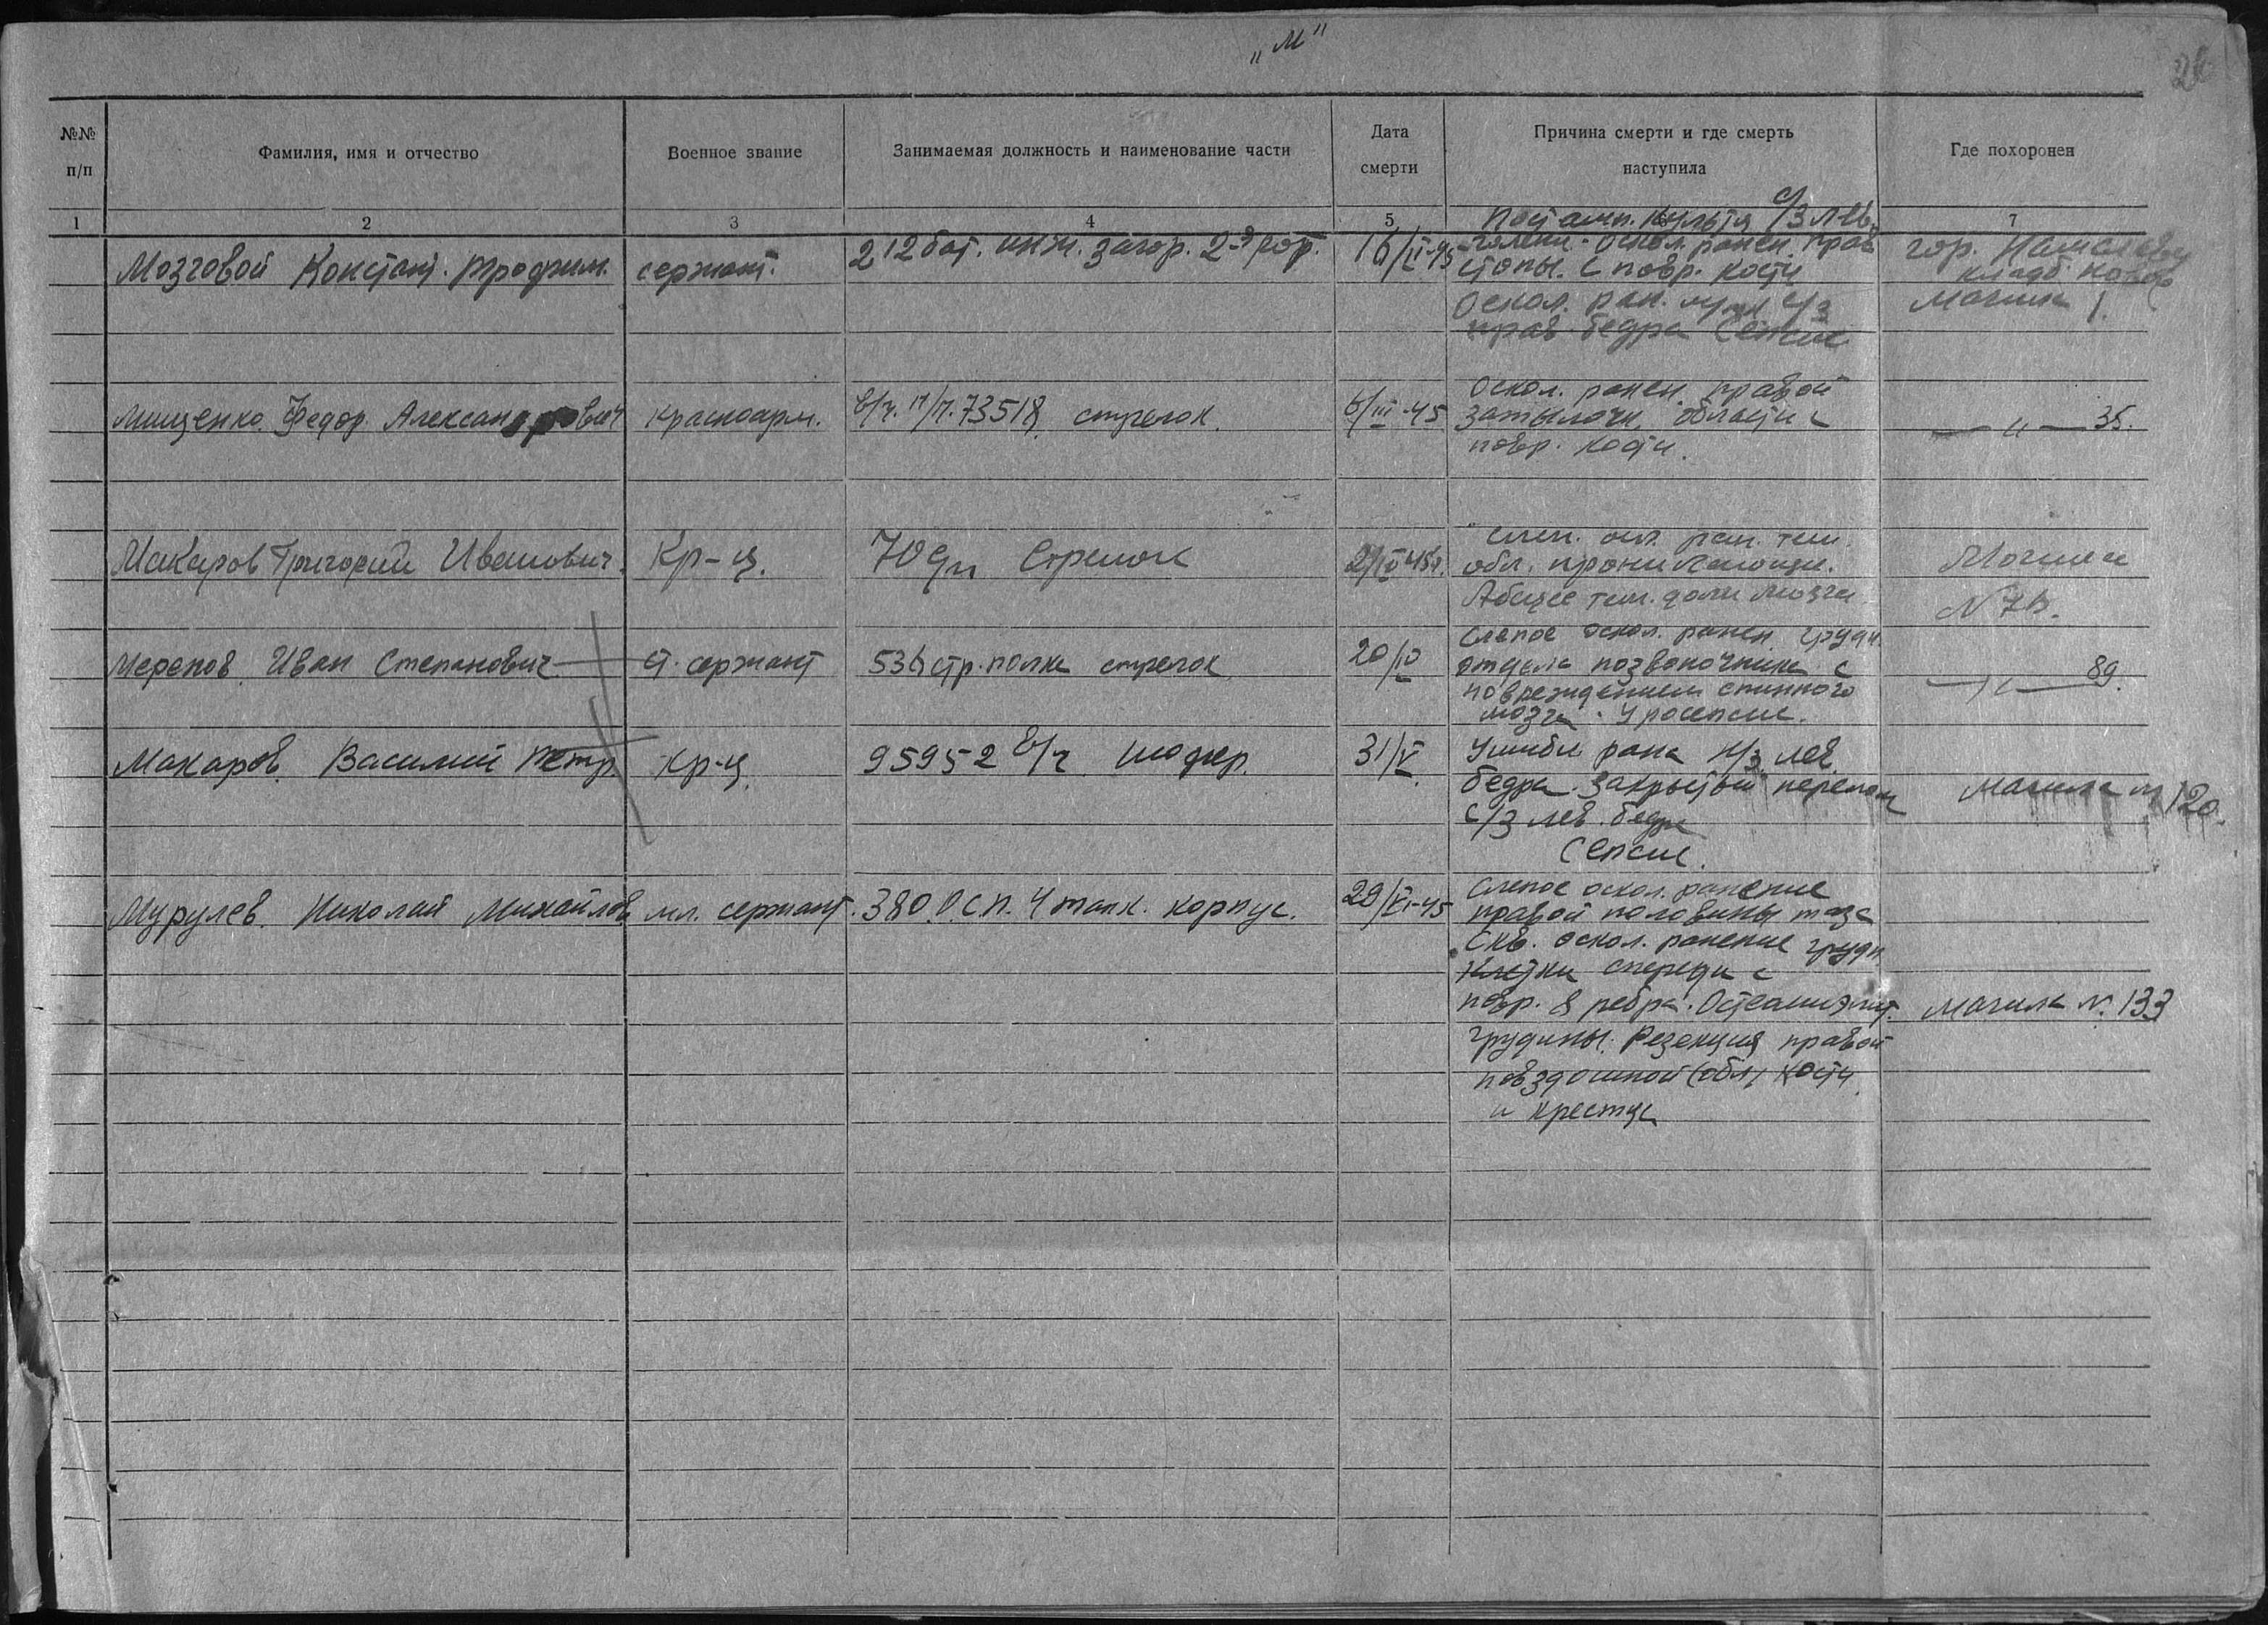 „М"
№№ п/п
Фамилия, имя и отчество
Военное звание
Занимаемая должность и наименование части
Дата смерти
Причина смерти и где смерть наступила
Где похоронен
1 2 3 4 5 7
Мозговой Констант. Трофим.
сержант.
212 бат. инж. загор. 2-й рот.
16/II-45
Пост амп. культя с/з лев.
голени. Оскол. ранен. прав
стопы. С повр. кости
Оскол. ран. с/з
прав. бедра Сепсис
гор.
кладб.
Могила 1.
Мищенко Федор Александрович
красноарм.
в/ч. п/п. 73518 стрелок.
6/III-45
Оскол. ранен. правой
затылочн. области с
повр. кости.
— " — 35.
Макаров Григорий Иванович.
Кр-ц.
70 сп Стрелок
2/IV 45г.
Слеп. оск. ран. тем.
обл. проникающ.
Абсцес тем. доли мозга
Могила
N 78.
Мерепов Иван Степанович
ст. сержант
536 стр. полка стрелок
20/IV
Слепое оскол. ранен. грудн.
отдела позвоночника с
повреждением спинного
мозга. Уросепсис.
— " — 89.
Макаров Василий Петр.
Кр-ц.
95952 в/ч шофер.
31/V.
Ушибл рана н/з лев
бедра. Закрытый перелом
с/з лев. бедра
Сепсис.
Могила N 120.
Мурулев Николай Михайлов
мл. сержант.
380 ОСП. 4 танк. корпус.
29/VI-45
Слепое оскол. ранение
правой половины таза
Скв. оскол. ранение грудн.
клетки спереди с
повр. 8 ребра. Остеомиэлит.
грудины. Резекция правой
повздошной (обл) кости
и крестца
Могила N. 133